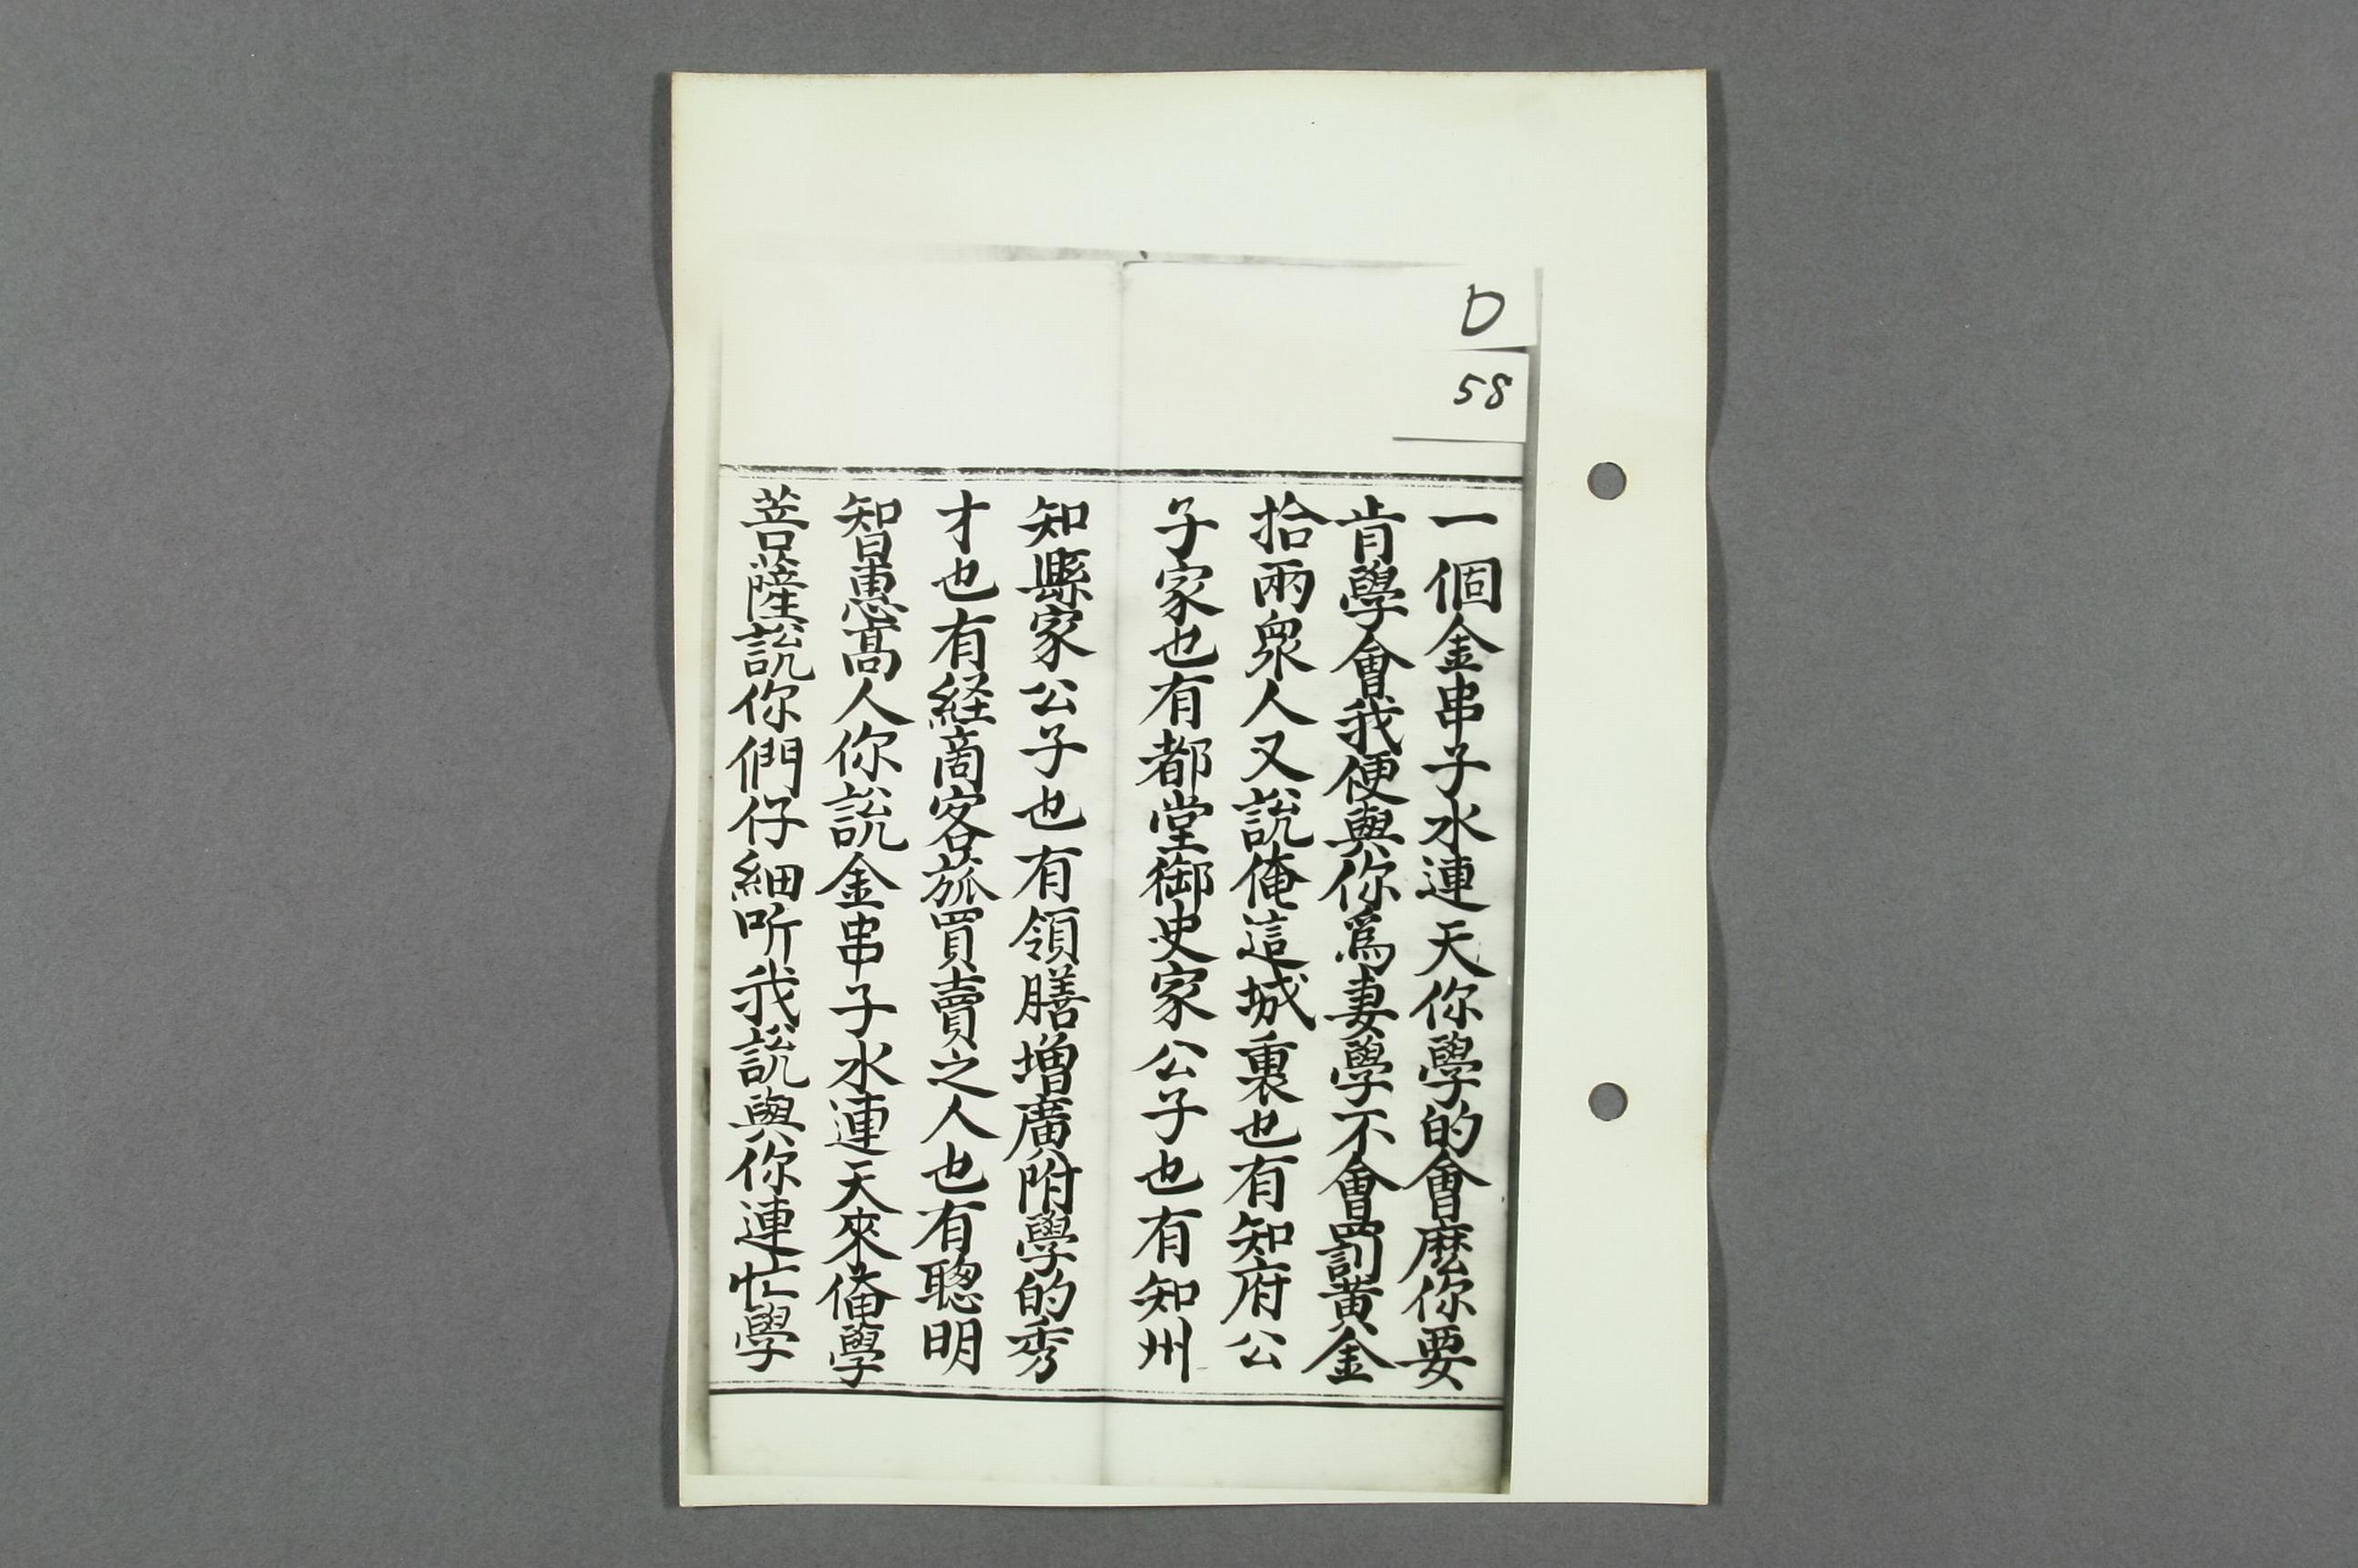 D
58
一個金串子水連天你學的會麽你要
肯學會我便與你爲妻學不會罰黃金
拾兩衆人又說俺這城裏也有知府公
子家也有都堂御史家公子也有知州
知縣家公子也有領膳增廣附學的秀
才也有経商客旅買賣之人也有聰明
智惠高人你說金串子水連天來俺學
菩薩說你們仔細听我說與你連忙學